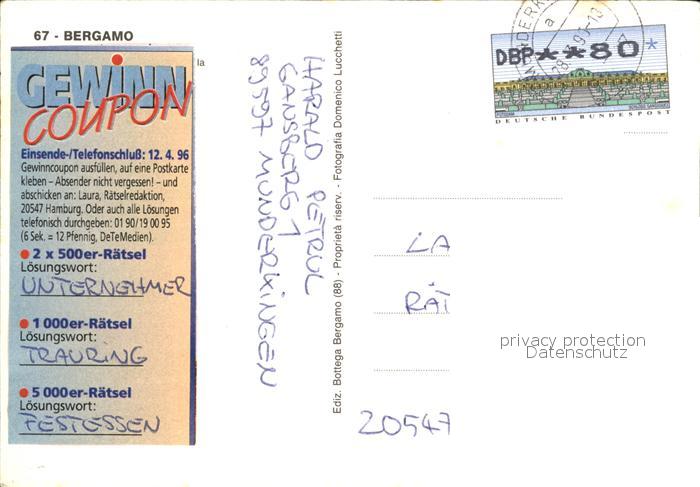 67 - BERGAMO
la
GEWINN
COUPON
Einsende-/Telefonschluß: 12. 4. 96
Gewinncoupon ausfüllen, auf eine Postkarte
kleben – Absender nicht vergessen! – und
abschicken an: Laura, Rätselredaktion,
20547 Hamburg. Oder auch alle Lösungen
telefonisch durchgeben: 01 90/19 00 95
(6 Sek. = 12 Pfennig, DeTeMedien).
2 x 500er-Rätsel
Lösungswort:
UNTERNEHMER
1 000er-Rätsel
Lösungswort:
TRAURING
5 000er-Rätsel
Lösungswort:
FESTESSEN
HARALD PETRUL
GANSBERG 1
89597 MUNDERKINGEN
Ediz. Bottega Bergamo (88) - Proprietà riserv. - Fotografia Domenico Lucchetti
DBP**80*
DEUTSCHE BUNDESPOST
LA
RÄT
20547
privacy protection
Datenschutz